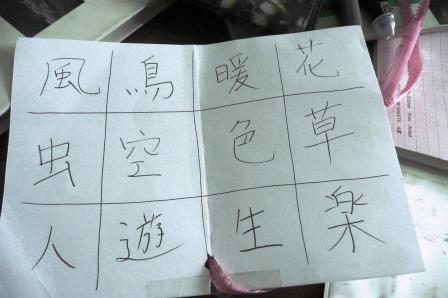 風 鳥 暖 花
虫 空 色 草
人 遊 生 楽